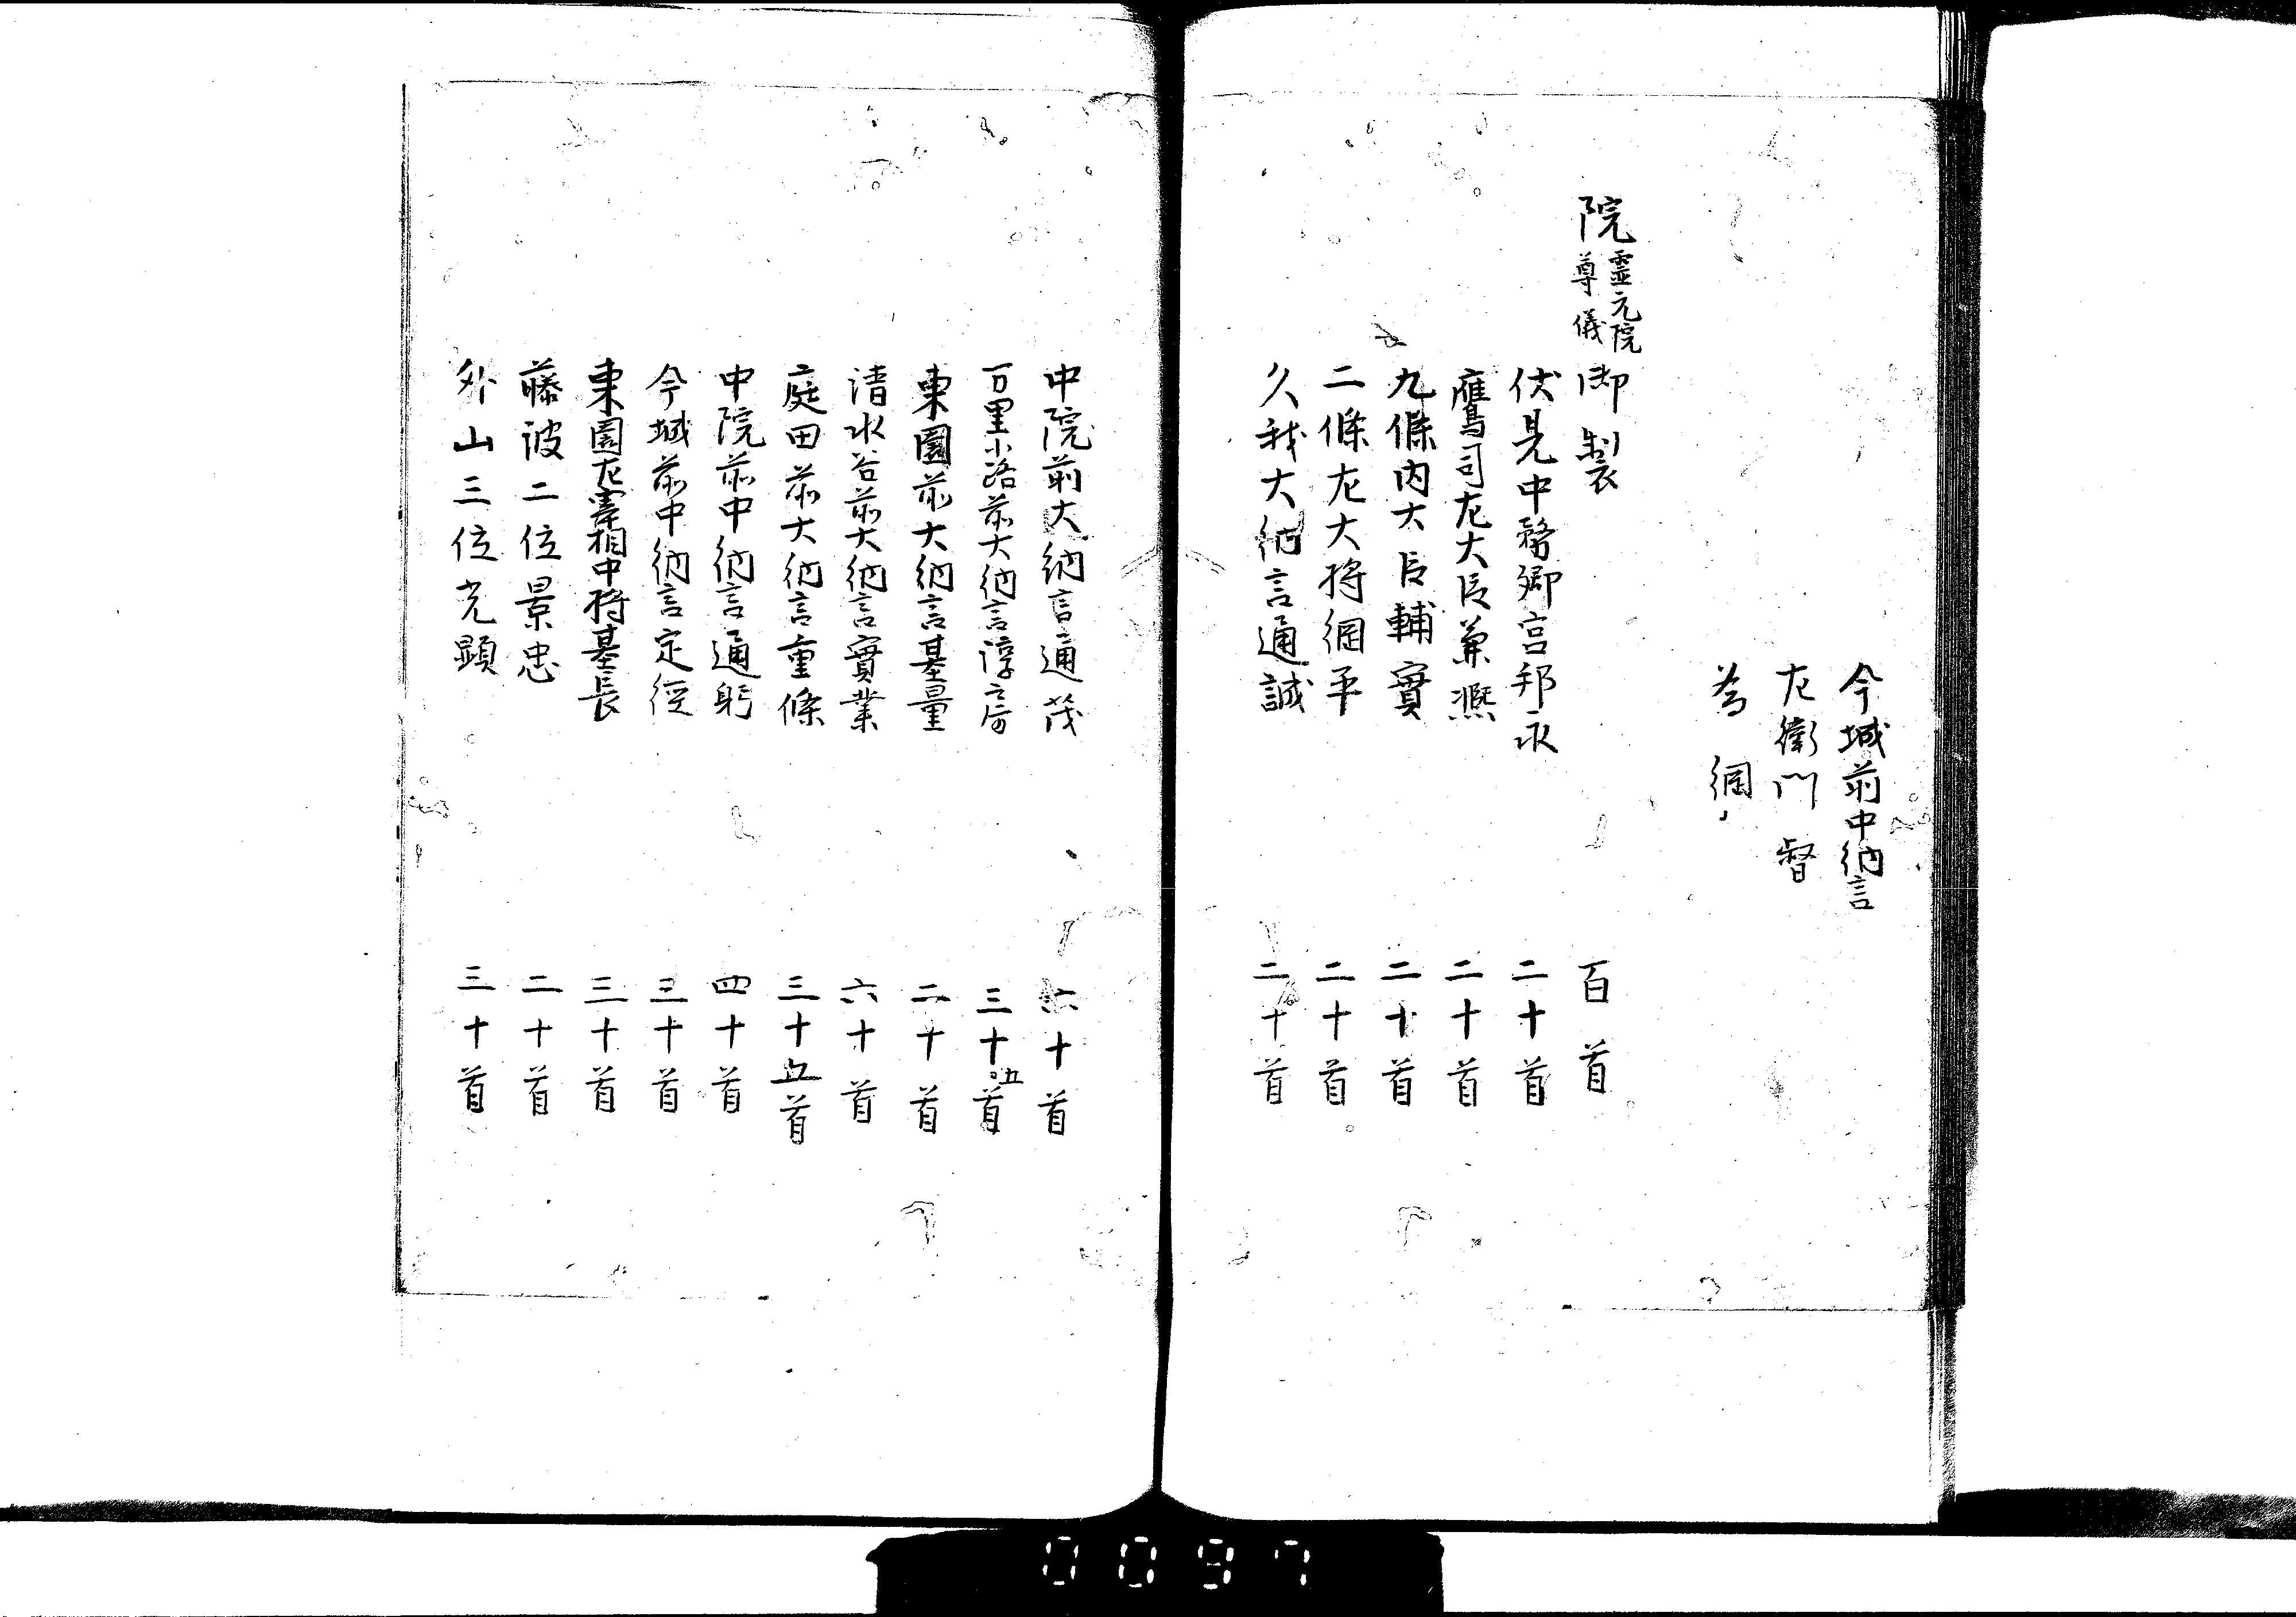 今城前中納言
左衛門督
為綱
院 霊元院尊儀 御製 百首
伏見中務卿宮邦永 二十首
鷹司左大臣兼熈 二十首
九條内大臣輔實 二十首
二條左大将綱平 二十首
久我大納言通誠 二十首
中院前大納言通茂 六十首
万里小路前大納言淳房 三十五首
東園前大納言基量 二十首
清水谷前大納言實業 六十首
庭田前大納言重條 三十五首
中院前中納言通躬 四十首
今城前中納言定経 三十首
東園左宰相中将基長 三十首
藤波二位景忠 二十首
外山三位光顕 三十首
0097